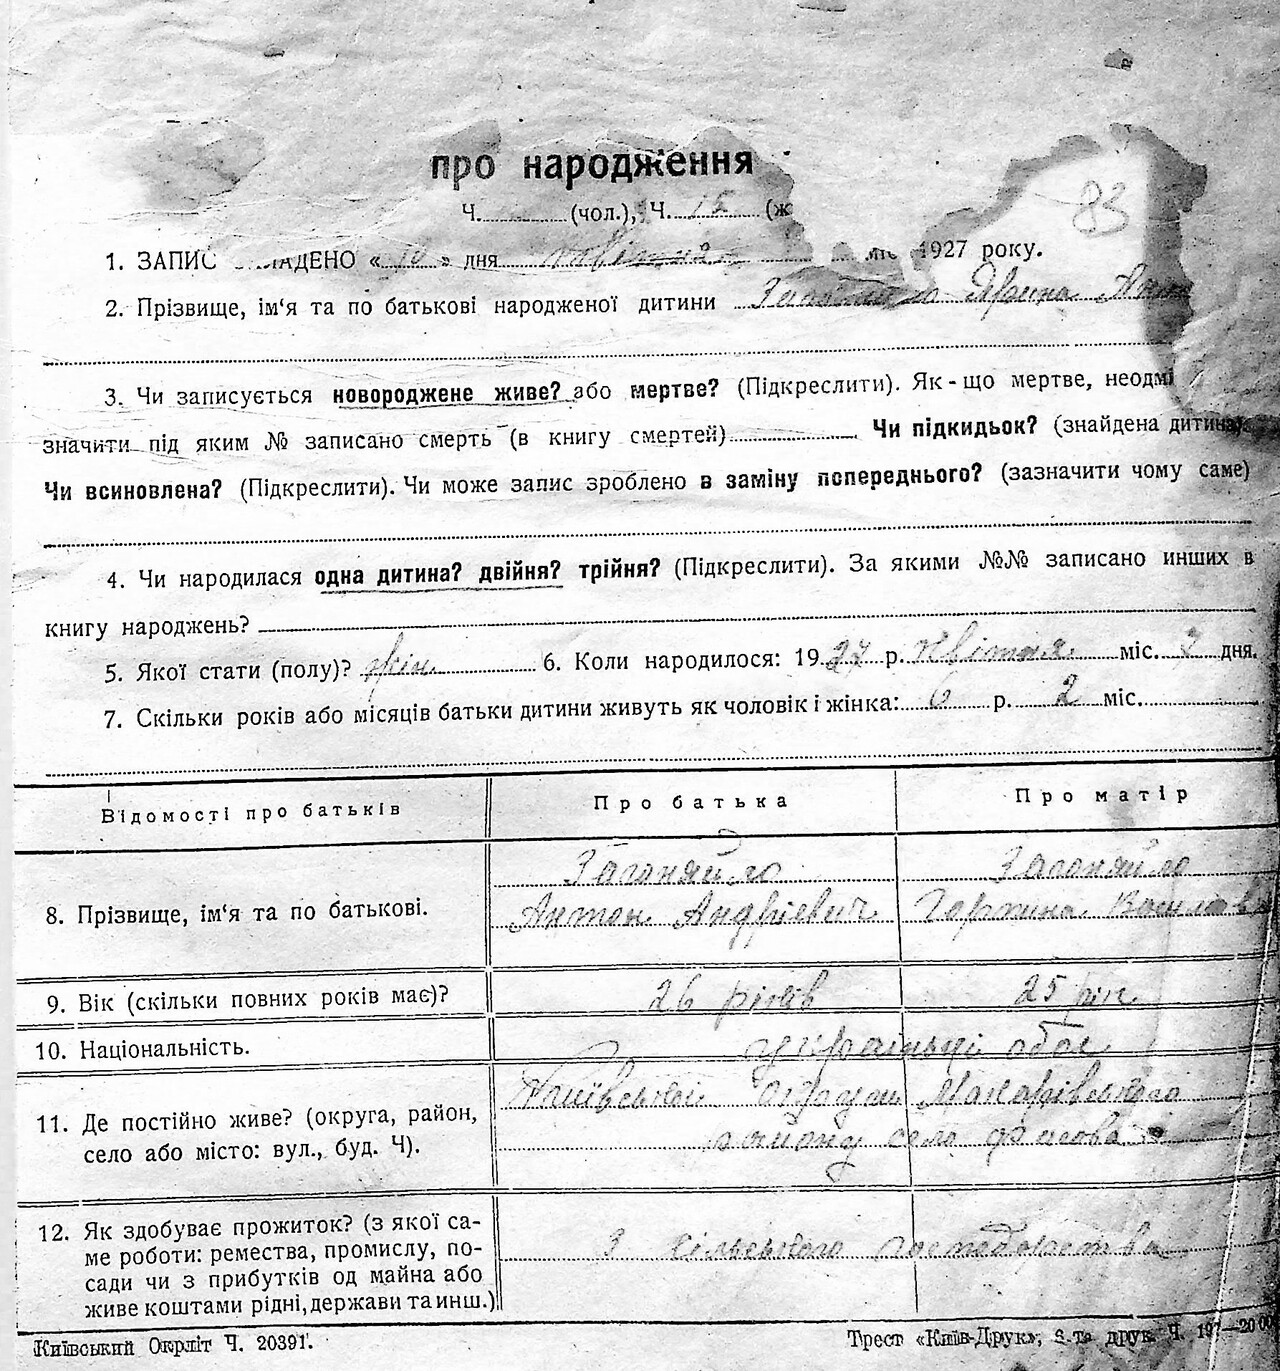 83
про народження
Ч. (чол.), Ч. 15 (ж
1. ЗАПИС КЛАДЕНО « 10 » дня квітня міс. 1927 року.
2. Прізвище, ім‘я та по батькові народженої дитини Заганяйло Ярина Ант
3. Чи записується новороджене живе? або мертве? (Підкреслити). Як-що мертве, неодмі
значити під яким № записано смерть (в книгу смертей) Чи підкидьок? (знайдена дитина).
Чи всиновлена? (Підкреслити). Чи може запис зроблено в заміну попереднього? (зазначити чому саме)
4. Чи народилася одна дитина? двійня? трійня? (Підкреслити). За якими №№ записано инших в
книгу народжень?
5. Якої стати (полу)? жін 6. Коли народилося: 1927 р. квітня міс. 7 дня.
7. Скільки років або місяців батьки дитини живуть як чоловік і жінка: 6 р. 2 міс.
Відомості про батьків Про батька Про матір
8. Прізвище, ім‘я та по батькові. Заганяйло Антон Андрієвич Заганяйло Горпина Василівна
9. Вік (скільки повних років має)? 26 років 25 рік
10. Національність. українці обоє
11. Де постійно живе? (округа, район, Київської округи Макарівського
село або місто: вул., буд. Ч). району село Фасова
12. Як здобуває прожиток? (з якої са-
ме роботи: ремества, промислу, по- З сільського господарства
сади чи з прибутків од майна або
живе коштами рідні, держави та инш.)
Київський Окрліт Ч. 20391.
Трест «Київ-Друк», 3-тя друк. Ч.